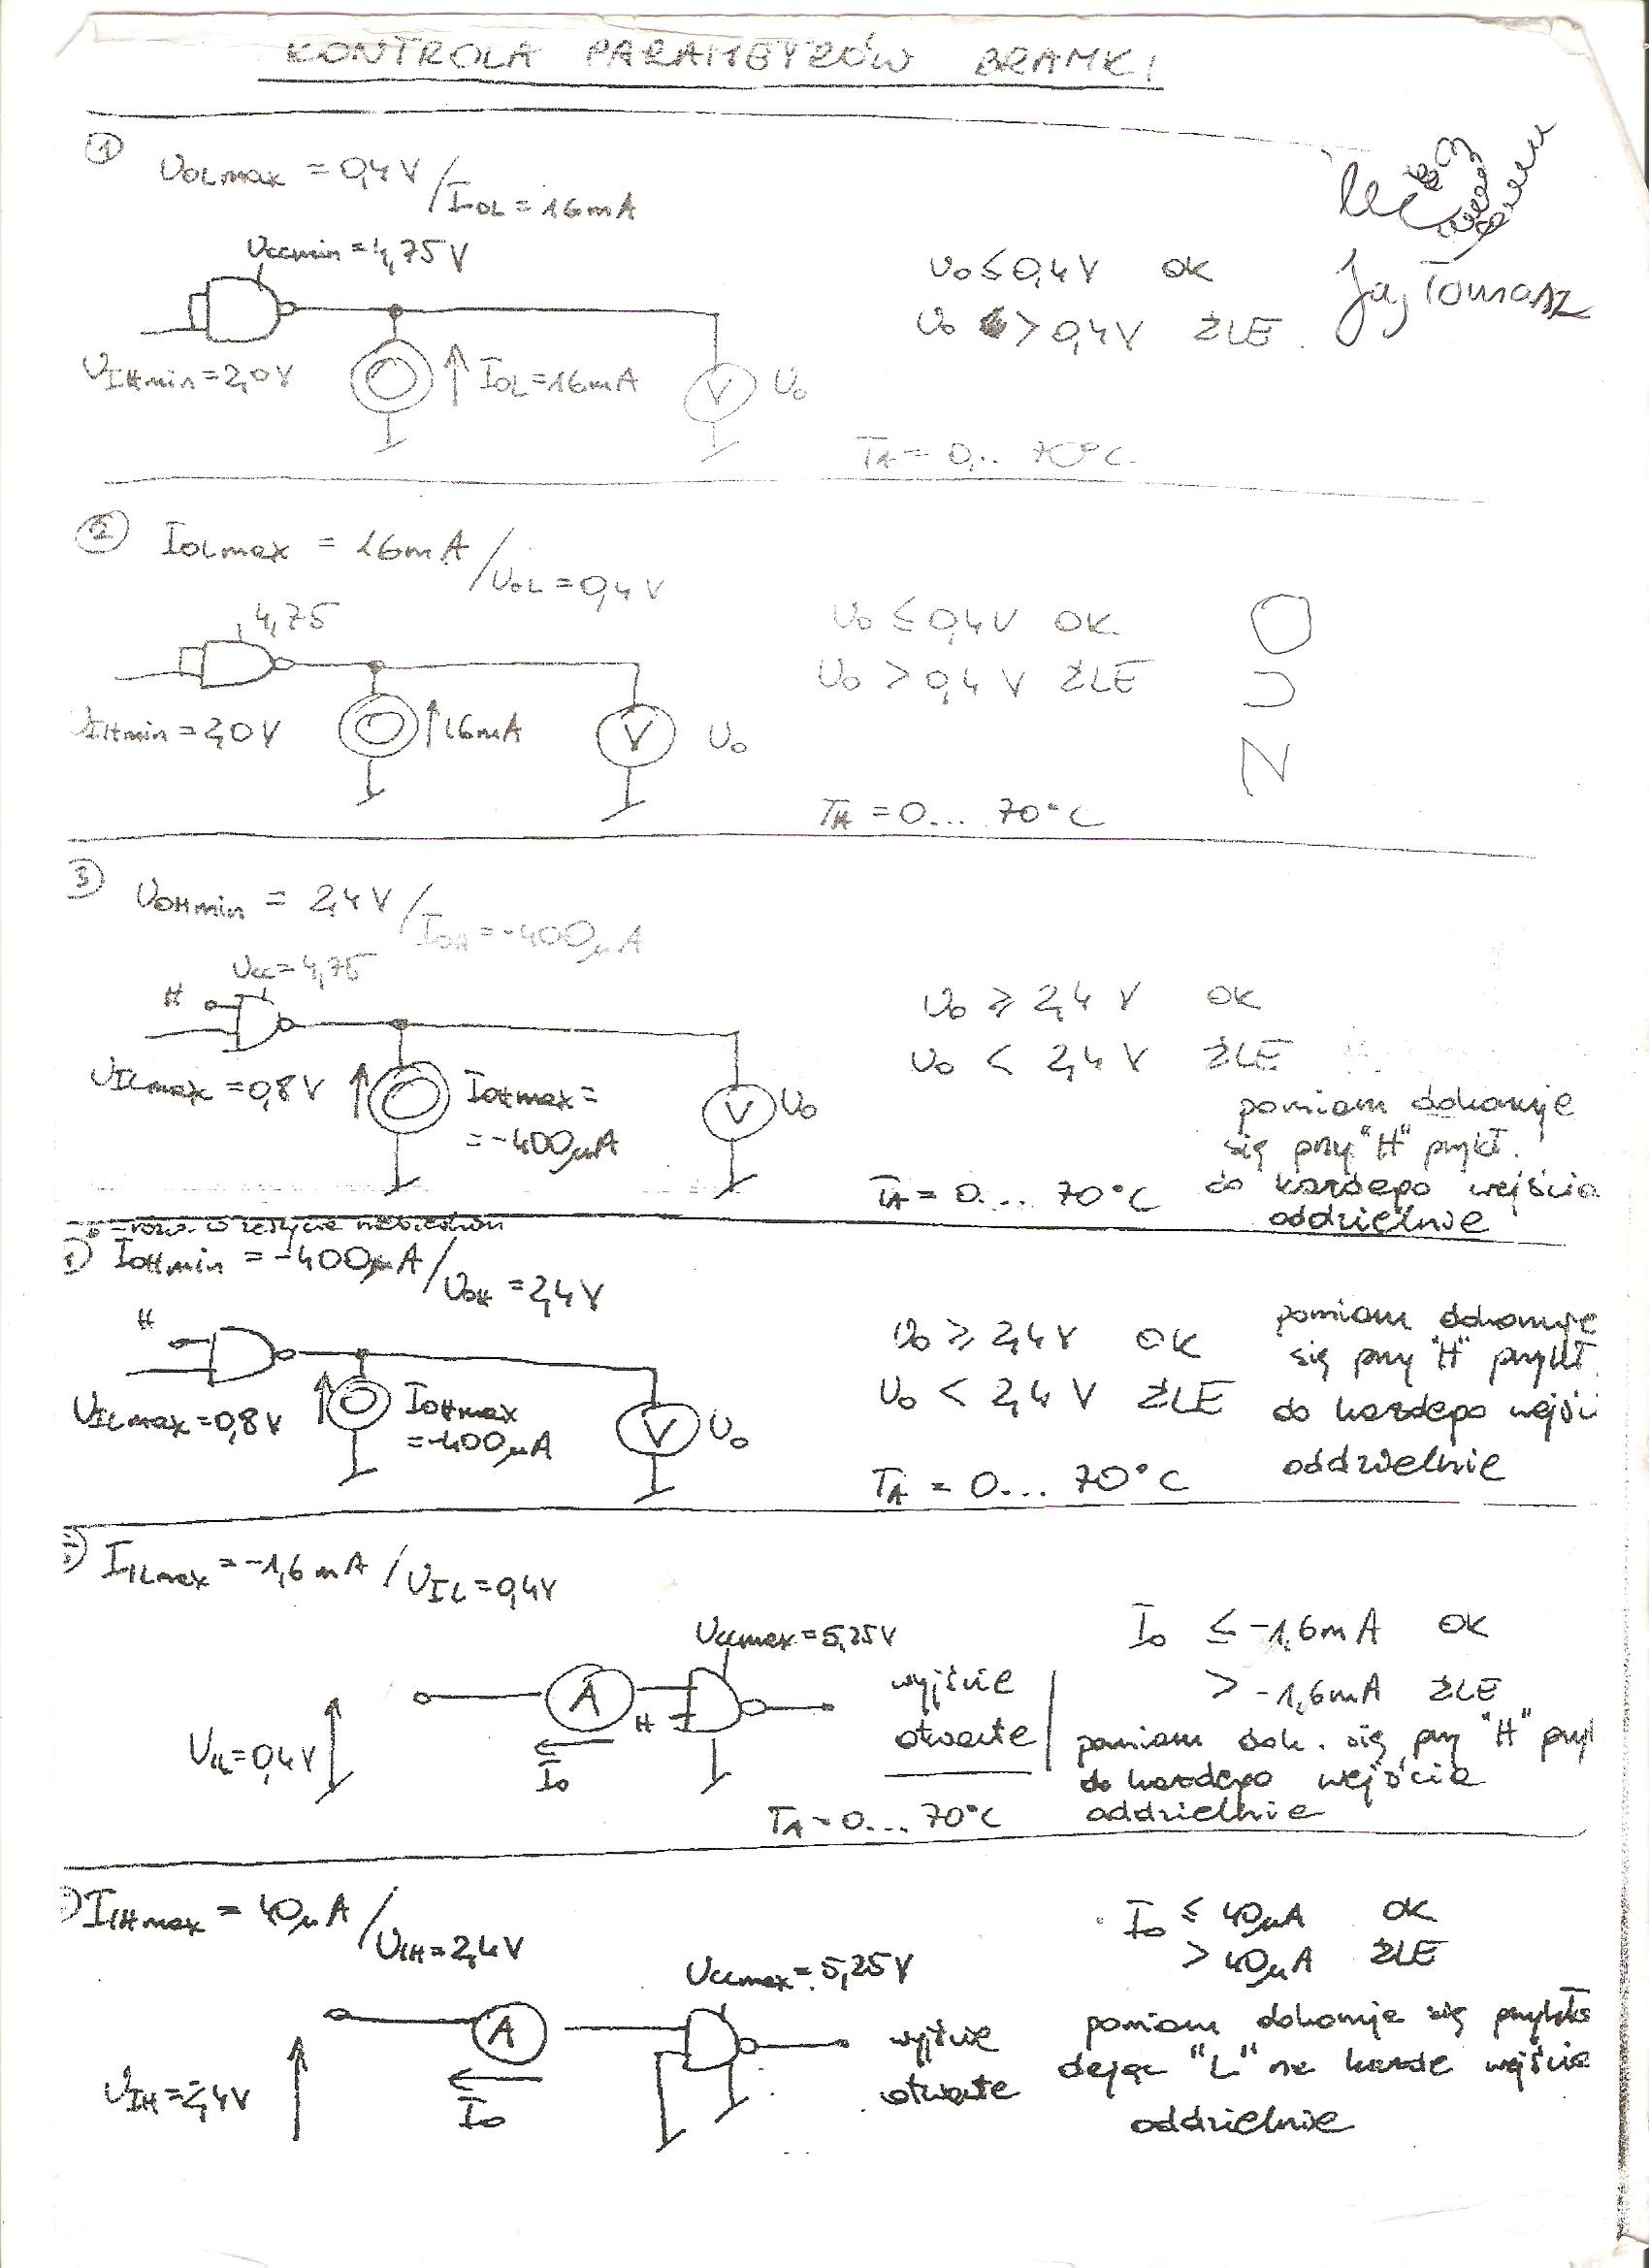 KONTROLA PARAMETRÓW BRAMKI
1
UOLmax = 0,4V / IOL = 16mA
UCCmin = 4,75V
UIHmin = 2,0V
IOL = 16mA
V
Uo
Uo ≤ 0,4V OK
Uo > 0,4V ŹLE.
TA = 0... 70°C.
Jaj Tomasz
2
IOLmax = 16mA / UOL = 0,4V
4,75
UIHmin = 2,0V
16mA
V
Uo
Uo ≤ 0,4V OK.
Uo > 0,4V ŹLE
TA = 0... 70°C
3
UOHmin = 2,4V / IOH = -400μA
Ucc = 4,75
H
UILmax = 0,8V
IOHmax =
= -400μA
V
Uo
Uo ≥ 2,4V OK
Uo < 2,4V ŹLE
pomiaru dokonuje
się przy "H" przykł.
do każdego wejścia
oddzielnie
TA = 0... 70°C
IOHmin = -400μA / UOH = 2,4V
H
UILmax = 0,8V
IOHmax
= -400μA
V
Uo
Uo ≥ 2,4V OK
Uo < 2,4V ŹLE
TA = 0... 70°C
pomiaru dokonuje
się przy "H" przykł.
do każdego wejści
oddzielnie
IILmax = -1,6mA / UIL = 0,4V
UCCmax = 5,25V
A
H
UIL = 0,4V
Io
wyjście
otwarte
TA = 0... 70°C
Io ≤ -1,6mA OK
> -1,6mA ŹLE
pomiaru dok. się przy "H" przył
do każdego wejścia
oddzielnie
IIHmax = 40μA / UIH = 2,4V
UCCmax = 5,25V
A
UIH = 2,4V
Io
wyjście
otwarte
Io ≤ 40μA OK
> 40μA ŹLE
pomiaru dokonuje się przykła
dając "L" na każde wejście
oddzielnie